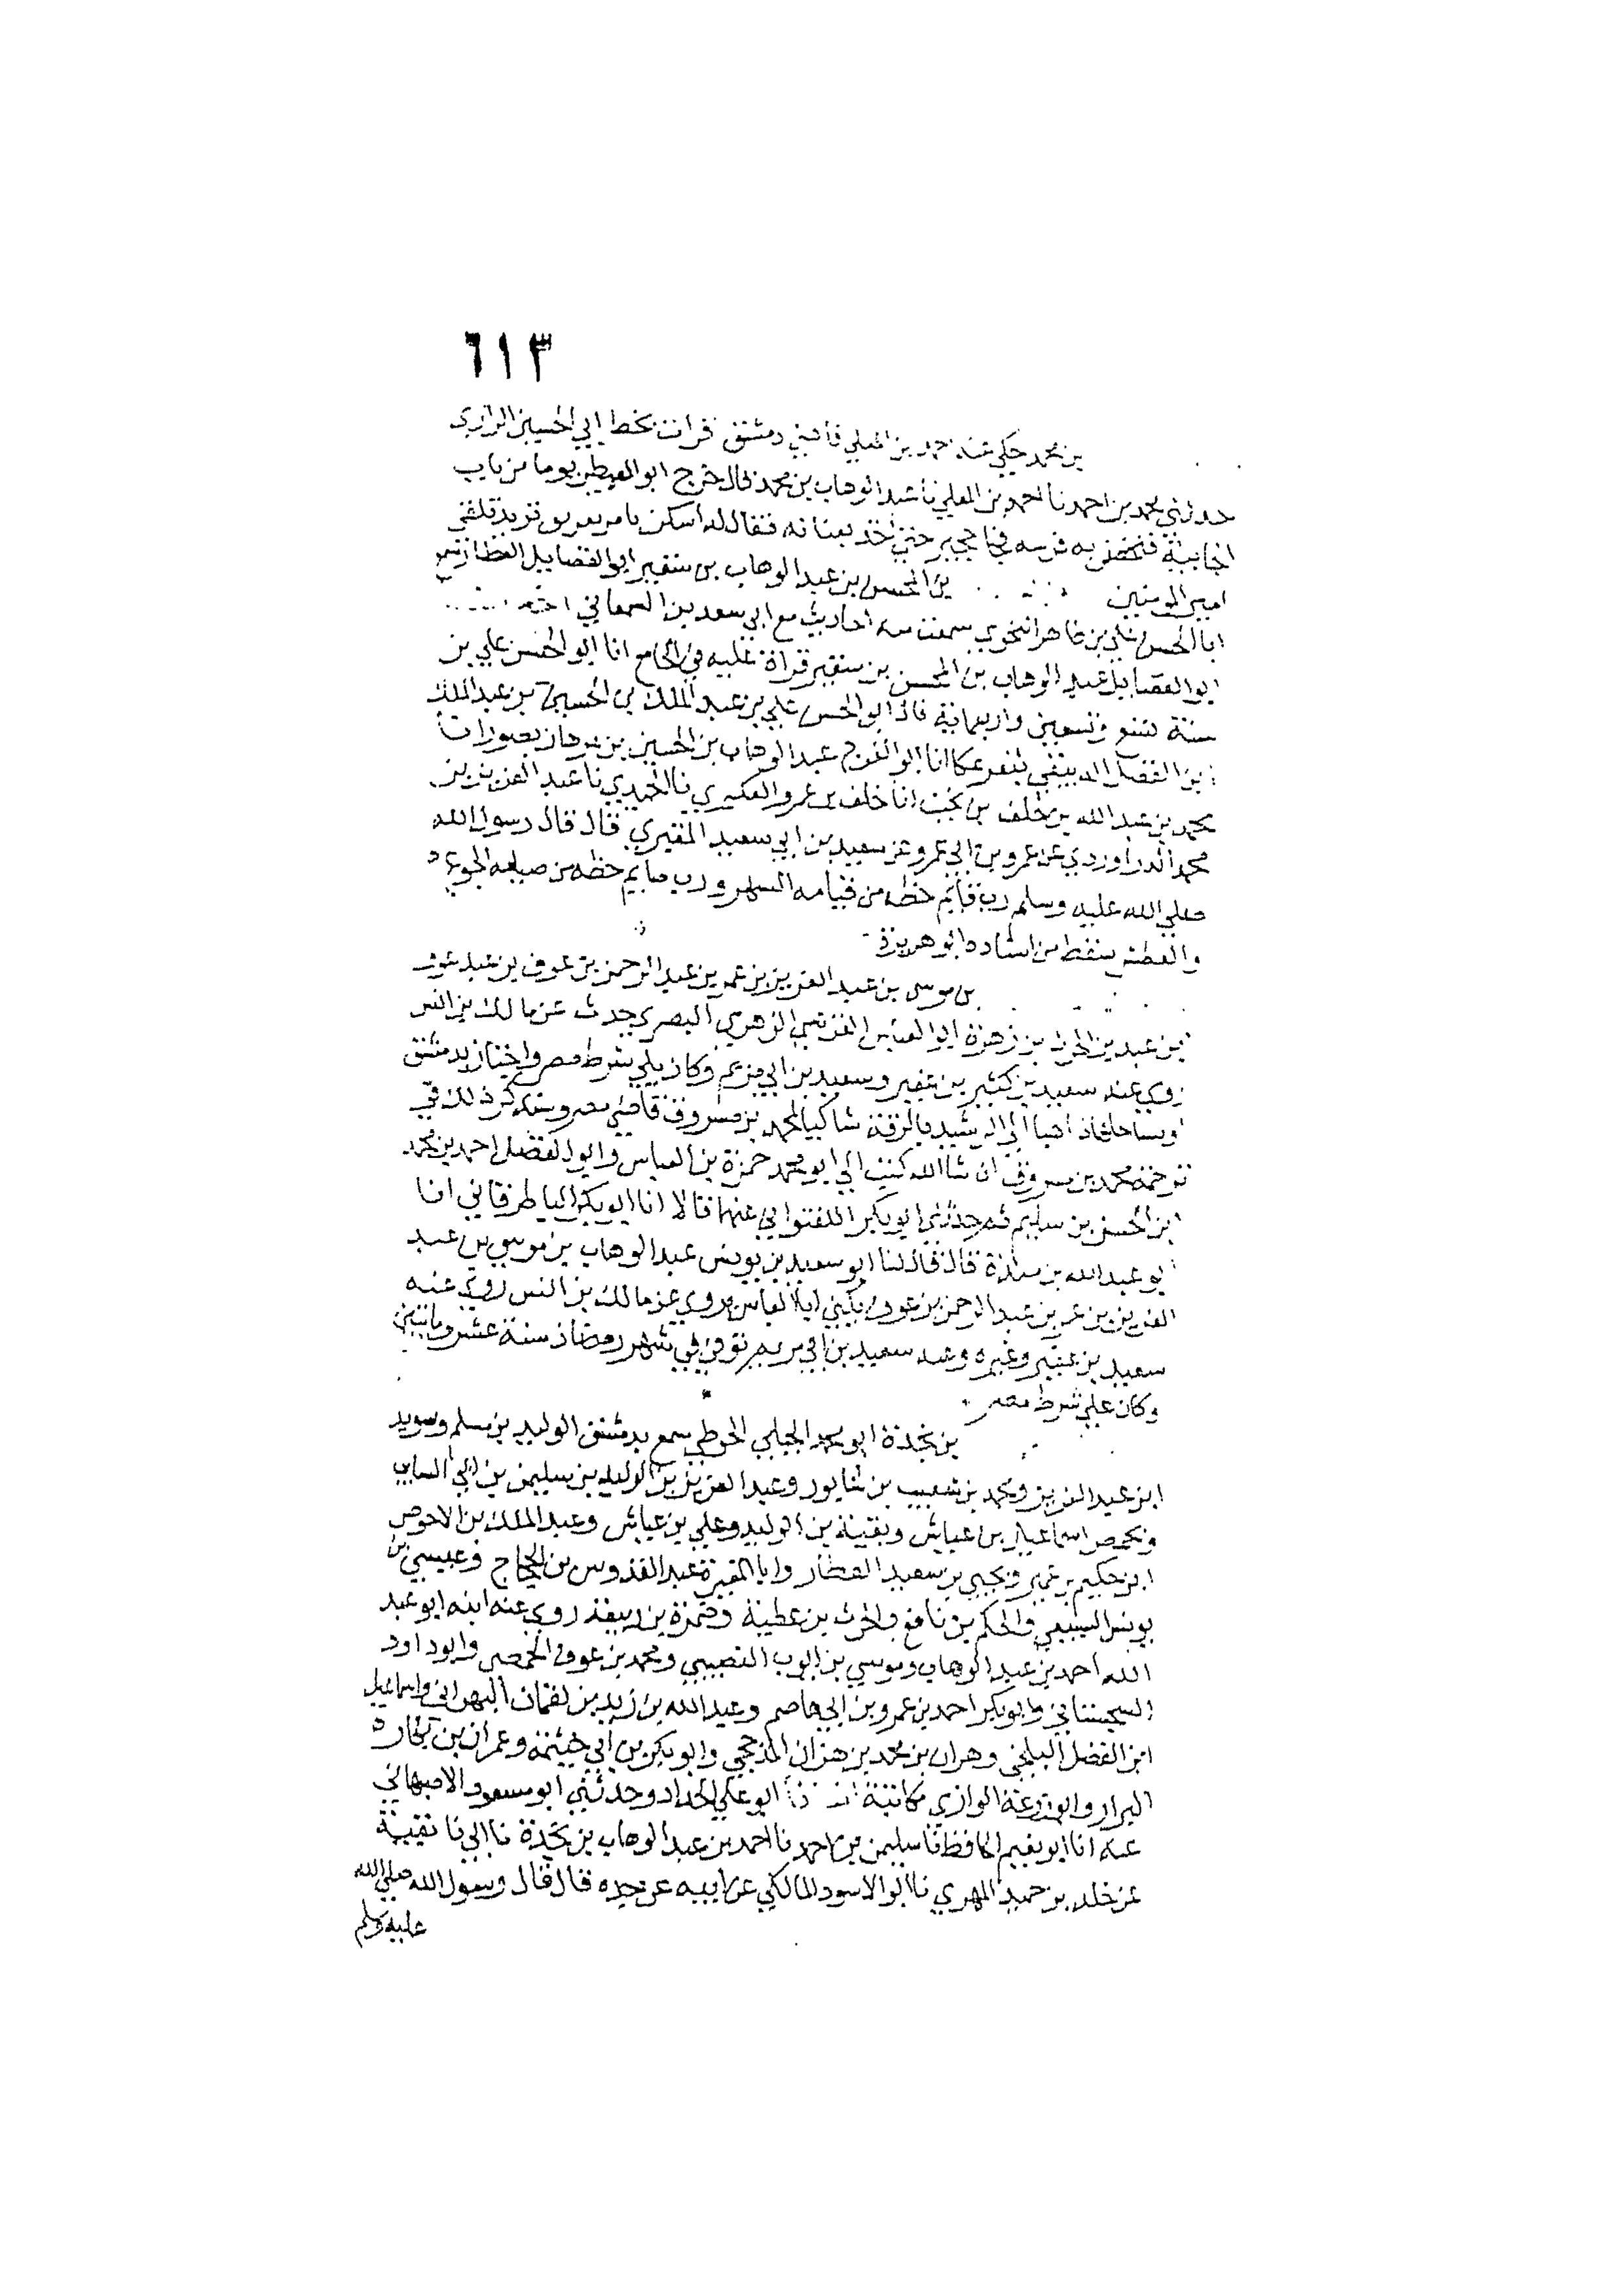 ٦١٣
بن محمد حكي عنه احمد بن المعلي قاضي دمشق قرات بخط ابي الحسين الرازي
حدثني محمد بن احمد نا احمد بن المعلي نا عبد الوهاب بن محمد قال خرج ابو العميطر يوما من باب
الجابية به فرسه فجا حتي اخذ بعنانه فقال له اسكن تريد تلقي
امير المومنين بن المحسن بن عبد الوهاب بن سقير ابو الفضايل العطار سمع
ابا الحسن علي بن طاهر النحوي سمعت منه احاديث مع ابي سعد بن السمعاني
ابو الفضايل عبد الوهاب بن المحسن بن سقير قراة عليه في الجامع انا ابو الحسن علي بن
سنة تسع وتسعين واربعماية قال ابو الحسن علي بن عبد الملك بن الحسين بن عبد الملك
بن الفضل الدبيقي بثغر عكا انا ابو الفرج عبد الوهاب بن الحسين بن برهان بصور انا
محمد بن عبد الله بن خلف بن بخيت انا خلف بن عمرو العكبري نا الحميدي نا عبد العزيز بن
محمد الدراوردي عن عمرو بن ابي عمرو عن سعيد بن ابي سعيد المقبري قال قال رسول الله
صلي الله عليه وسلم رب قايم حظه من قيامه السهر ورب صايم حظه من صيامه الجوع
والعطش سقط من اسناده ابو هريرة
بن موسى بن عبد العزيز بن عمر بن عبد الرحمن بن عوف بن عبد عوف
بن عبد بن الحرث بن زهرة ابو العباس القرشي الزهري البصري حدث عن مالك بن انس
روي عنه سعيد بن كثير بن عفير وسعيد بن ابي مريم وكان يلي شرط مصر واجتاز بدمشق
او بساحلها ذاهبا الي الرشيد بالرقة شاكيا لمحمد بن مسروق قاضي مصر وسنذكر ذلك في
ترجمة محمد بن مسروق ان شا الله كتب الي ابو محمد حمزة بن العباس وابو الفضل احمد بن محمد
ابن الحسن بن سليم ثم حدثني ابو بكر اللفتواني عنهما قالا انا ابو بكر الباطرقاني انا
ابو عبد الله بن مندة قال قال لنا ابو سعيد بن يونس عبد الوهاب بن موسي بن عبد
العزيز بن عمر بن عبد الرحمن بن عوف يكني ابا العباس يروي عن مالك بن انس روي عنه
سعيد بن عفير وغيره وعنه سعيد بن ابي مريم توفي في شهر رمضان سنة عشر وماتين
وكان علي شرط مصر
بن نجدة ابو محمد الجبلي الحوطي سمع بدمشق الوليد بن مسلم وسويد
ابن عبد العزيز ومحمد بن شعيب بن شابور وعبد العزيز بن الوليد بن سليمن بن ابي السايب
وبحمص اسماعيل بن عياش وبقية بن الوليد وعلي بن عياش وعبد الملك بن الاحوص
ابن حكيم بن عمير ويحيي بن سعيد العطار وابا المغيرة عبد القدوس بن الحجاج وعيسي بن
يونس السبيعي والحكم بن نافع والحرث بن عطية وضمرة بن ربيعة روي عنه ابنه ابو عبد
الله احمد بن عبد الوهاب وموسي بن ايوب النصيبي ومحمد بن عوف الحمصي وابو داود
السجستاني وابو بكر احمد بن عمرو بن ابي عاصم وعبد الله بن زيد بن لقمان البهراني واسماعيل
ابن الفضل البلخي وهران بن محمد بن هزان المذحجي وابو بكر بن ابي خيثمة وعمران بن بكار
البراد وابو زرعة الرازي مكاتبة ابو علي الحداد وحدثني ابو مسعود الاصبهاني
عنه انا ابو نعيم الحافظ نا سليمن بن احمد نا احمد بن عبد الوهاب بن نجدة نا ابي نا بقية
عن خلد بن حميد المهري نا ابو الاسود المالكي عن ابيه عن جده قال قال رسول الله صلي الله
عليه وسلم